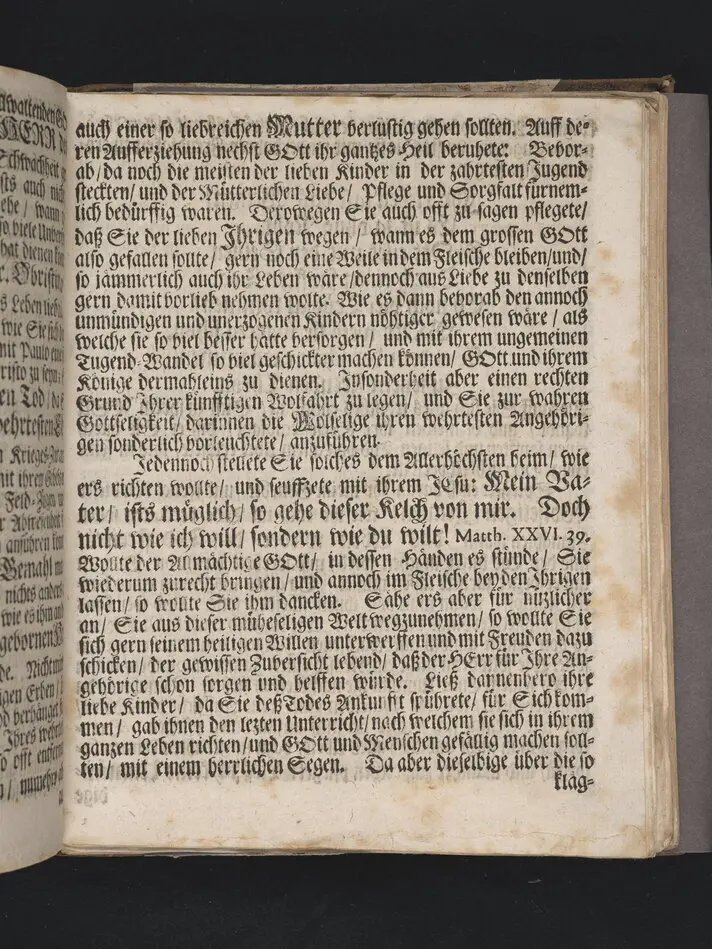 allwaltenden
HERR
Schwachheit
sts auch
ehe / wann
so viele
hat dienen
r. Obrist
s Leben
wie Sie
mit Paulo
risto zu seyn
en Tod / daß
ehrtesten
n Kriegs
nt ihren
Feld-
r Abwesenheit
anführen
Gemahl
nichts anders
wie es ihm
gebornen
de. Nicht
igen Erben /
d verhänget
Ihres
o offt
n / nunmehr
auch einer so liebreichen Mutter verlustig gehen sollten. Auff de-
ren Aufferziehung nechst GOtt ihr gantzes Heil beruhete: Bevor-
ab / da noch die meisten der lieben Kinder in der zahrtesten Jugend
steckten / und der Mütterlichen Liebe / Pflege und Sorgfalt fürnem-
lich bedürffig waren. Derowegen Sie auch offt zu sagen pflegete /
daß Sie der lieben Ihrigen wegen / wann es dem grossen GOtt
also gefallen sollte / gern noch eine Weile in dem Fleische bleiben / und /
so jämmerlich auch ihr Leben wäre / dennoch aus Liebe zu denselben
gern damit vorlieb nehmen wolte. Wie es dann bevorab den annoch
unmündigen und unerzogenen Kindern nöhtiger gewesen wäre / als
welche sie so viel besser hätte versorgen / und mit ihrem ungemeinen
Tugend-Wandel so viel geschickter machen können / GOtt und ihrem
Könige dermahleins zu dienen. Insonderheit aber einen rechten
Grund Ihrer künfftigen Wolfahrt zu legen / und Sie zur wahren
Gottseligkeit / darinnen die Wolselige ihren wehrtesten Angehöri-
gen sonderlich vorleuchtete / anzuführen.
Jedennoch stellete Sie solches dem Allerhöchsten heim / wie
ers richten wollte / und seuffzete mit ihrem JEsu: Mein Va-
ter / ists müglich / so gehe dieser Kelch von mir. Doch
nicht wie ich will / sondern wie du wilt! Matth. XXVI. 39.
Wollte der Allmächtige GOtt / in dessen Händen es stünde / Sie
wiederum zurecht bringen / und annoch im Fleische bey den Ihrigen
lassen / so wollte Sie ihm dancken. Sähe ers aber für nüzlicher
an / Sie aus dieser müheseligen Welt wegzunehmen / so wollte Sie
sich gern seinem heiligen Willen unterwerffen und mit Freuden dazu
schicken / der gewissen Zuversicht lebend / daß der HErr für Ihre An-
gehörige schon sorgen und helffen würde. Ließ dannenhero ihre
liebe Kinder / da Sie deß Todes Ankunfft spührete / für Sich kom-
men / gab ihnen den lezten Unterricht / nach welchem sie sich in ihrem
ganzen Leben richten / und GOtt und Menschen gefällig machen soll-
ten / mit einem herrlichen Segen. Da aber dieselbige über die so
kläg-